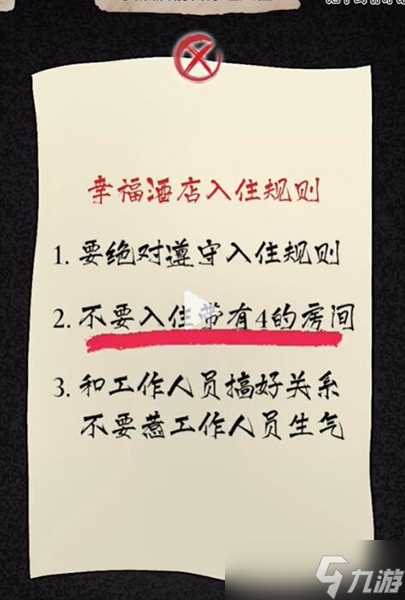 幸福酒店入住规则
1. 要绝对遵守入住规则
2. 不要入住带有4的房间
3. 和工作人员搞好关系
不要惹工作人员生气
九游